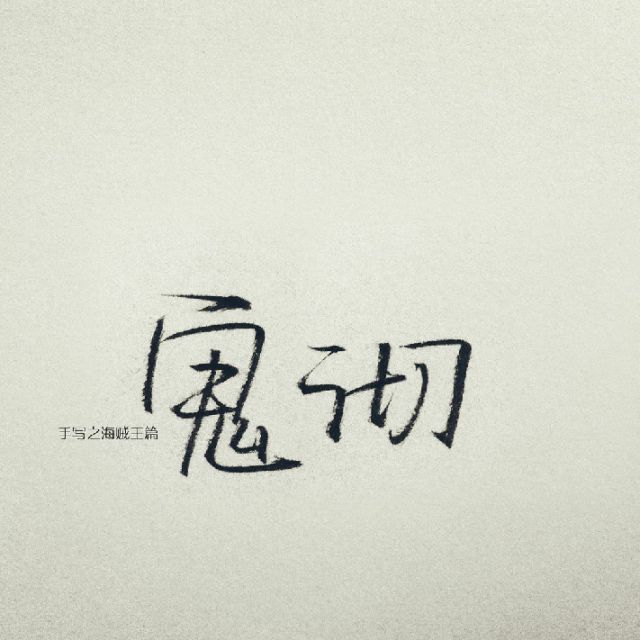 鬼彻
手写之海贼王篇